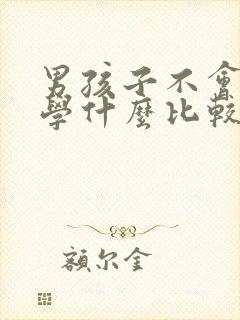 男孩子不會
學什麼比較
額尔金